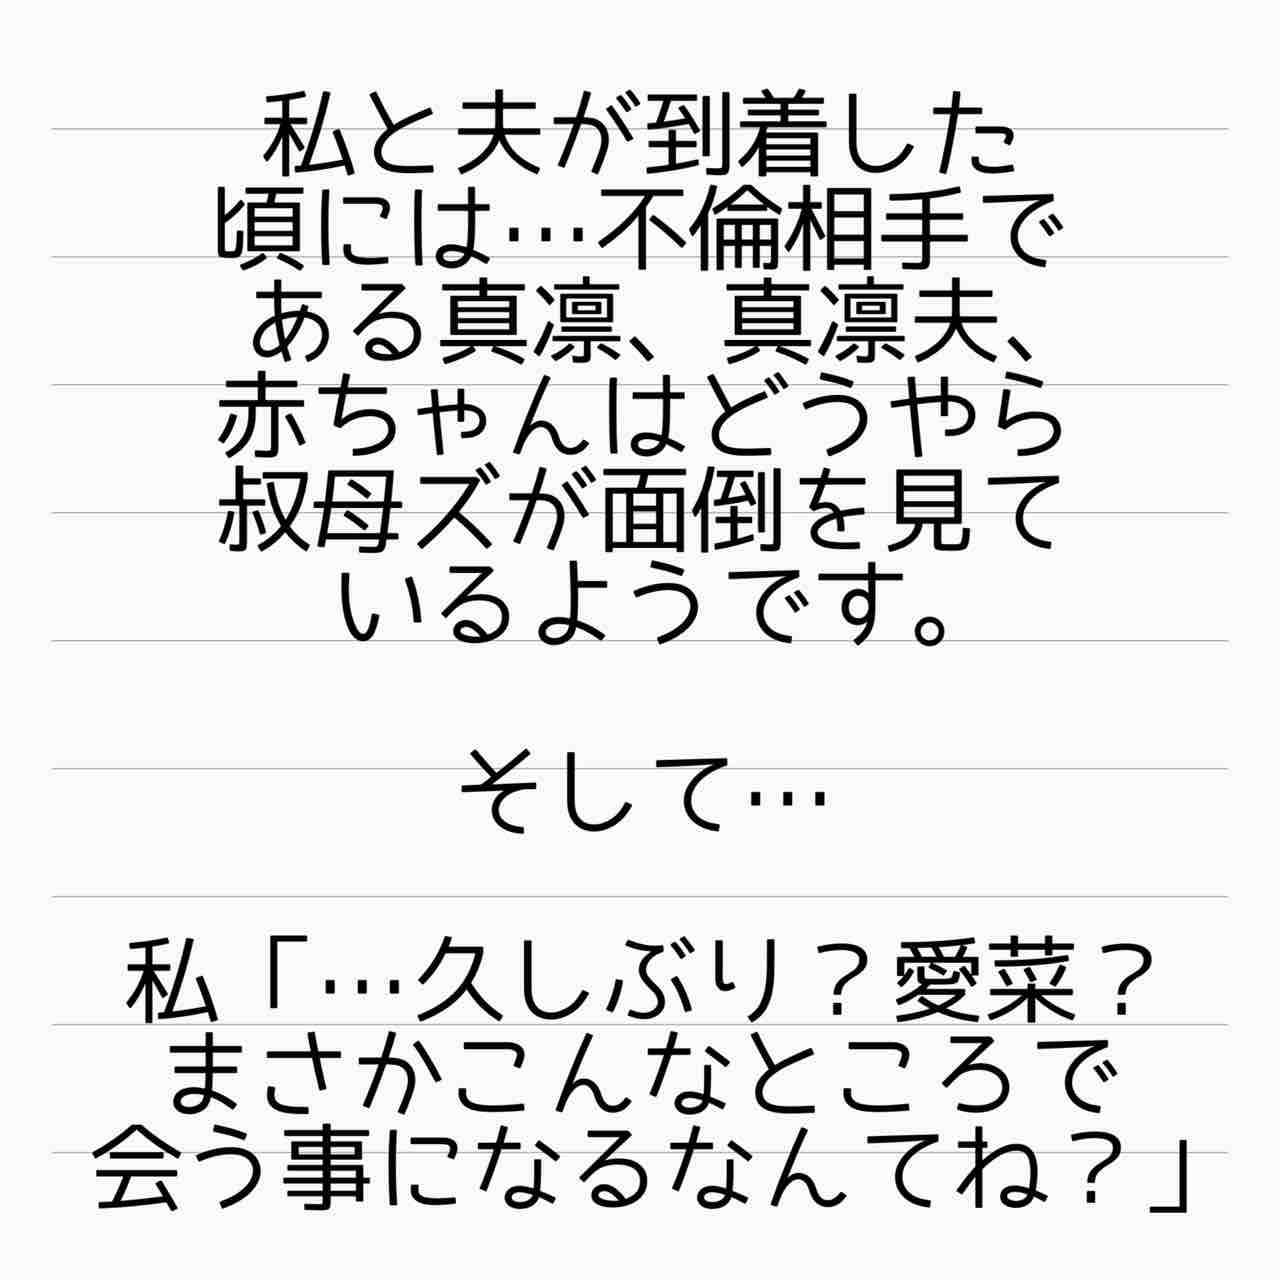 私と夫が到着した
頃には…不倫相手で
ある真凛、真凛夫、
赤ちゃんはどうやら
叔母ズが面倒を見て
いるようです。
そして…
私「…久しぶり？愛菜？
まさかこんなところで
会う事になるなんてね？」